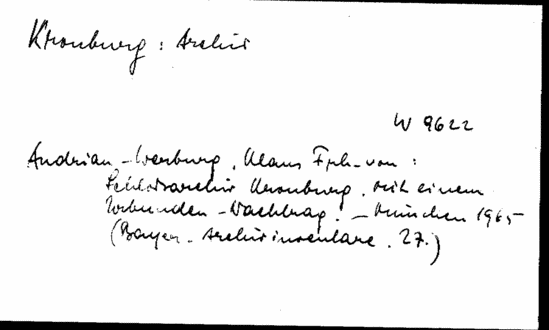 Kronburg : Archiv
W 9622
Andrian-Werburg, Klaus Frh. von :
Schlossarchiv Kronburg. Mit einem
Urkunden-Nachtrag. - München 1965
(Bayer. Archivinventare. 27.)